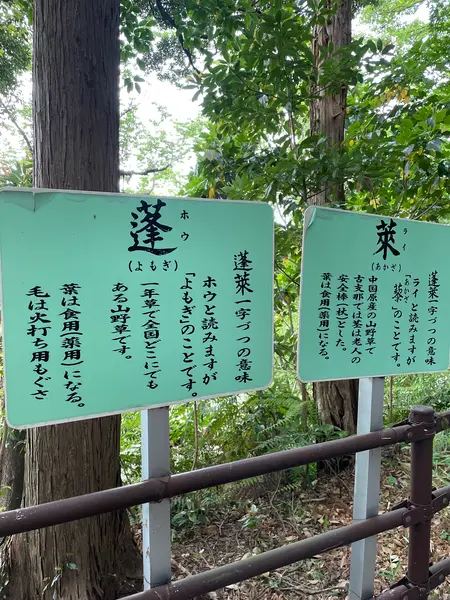 蓬
ホウ
(よもぎ)
蓬莱一字づつの意味
ホウと読みますが
「よもぎ」のことです。
一年草で全国どこにでも
ある山野草です。
葉は食用「薬用」になる。
毛は火打ち用もぐさ
莱
ライ
(あかざ)
蓬莱一字づつの意味
ライと読みますが
「藜」のことです。
あかざ
中国原産の山野草で
古支那では茎は老人の
安全棒(杖)とした。
葉は食用「薬用」になる。